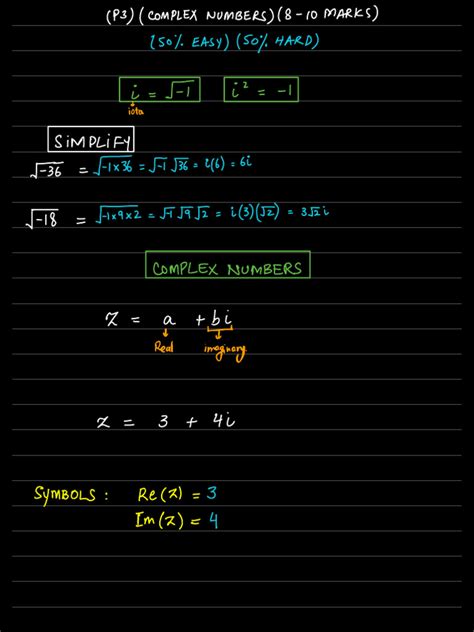 (P3) (COMPLEX NUMBERS) (8-10 MARKS)
(50% EASY) (50% HARD)
i = √-1    i² = -1
iota
SIMPLIFY
√-36 = √-1×36 = √-1 √36 = i(6) = 6i
√-18 = √-1×9×2 = √-1 √9 √2 = i(3)(√2) = 3√2 i
COMPLEX NUMBERS
z = a + bi
Real    imaginary
z = 3 + 4i
SYMBOLS : Re(z) = 3
Im(z) = 4